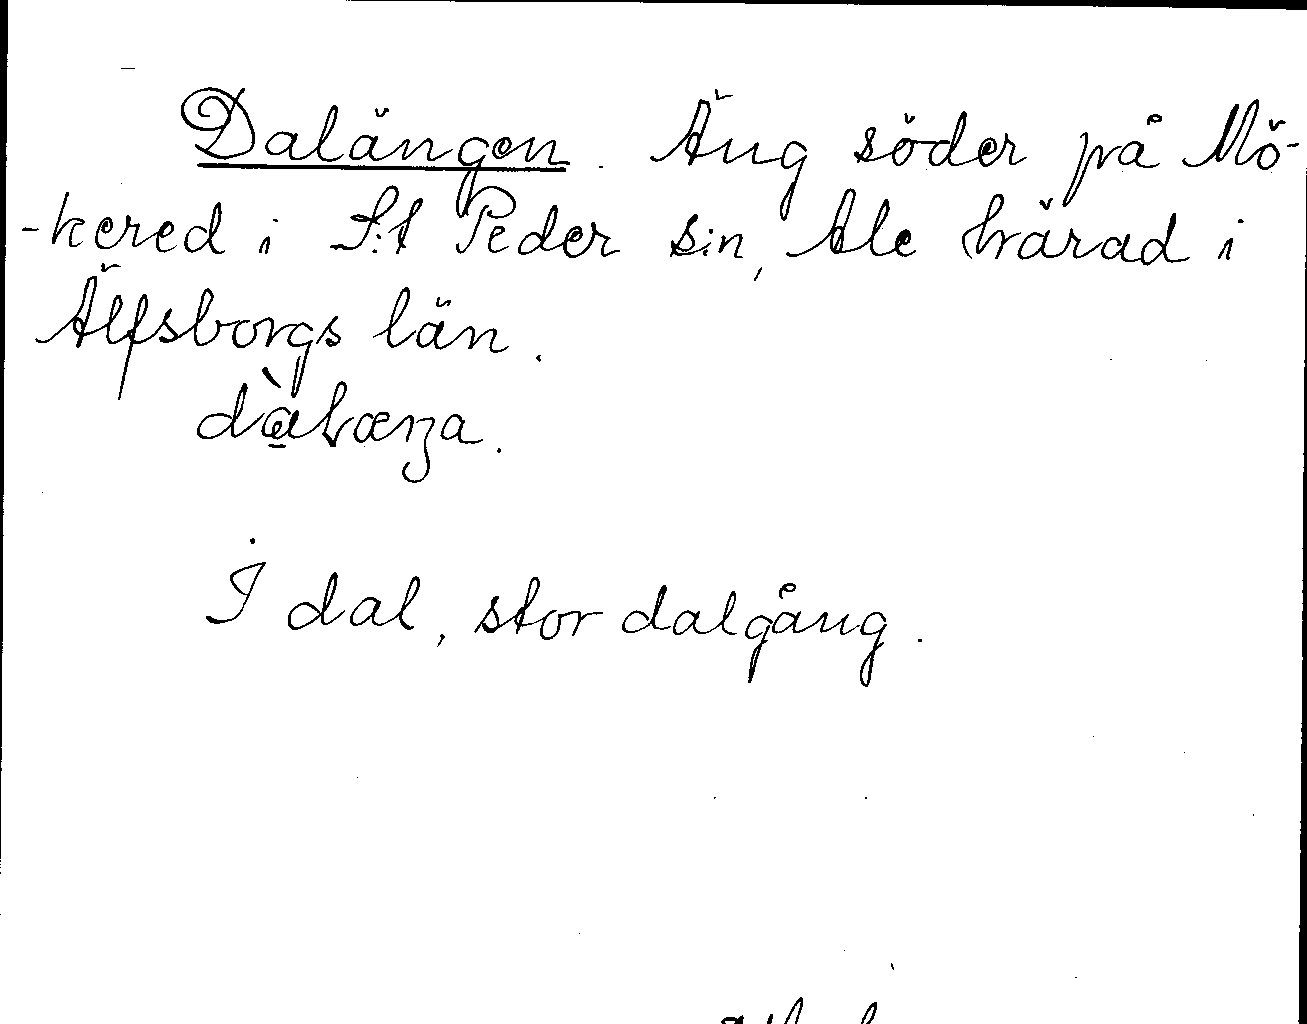 Dalängen. Äng söder på Mö-
-kered i S:t Peder s:n, Ale härad i
Älfsborgs län.
dàlæŋa.
I dal, stor dalgång.